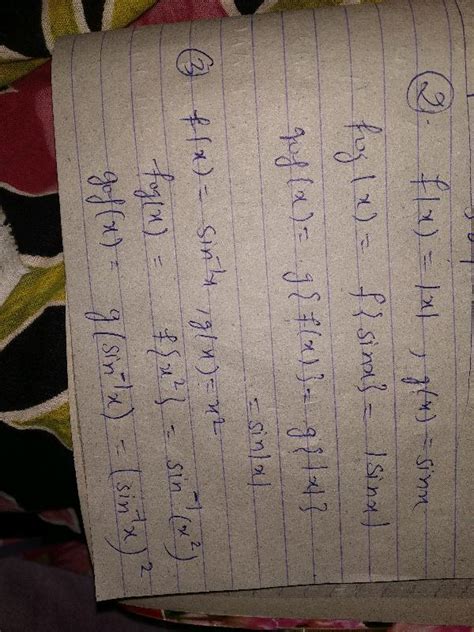 ② f(x) = |x| , g(x) = sinx
fog(x) = f{sinx} = |sinx|
gof(x) = g{f(x)} = g{|x|}
= sin|x|
③ f(x) = sin⁻¹x , g(x) = x²
fog(x) = f{x²} = sin⁻¹(x²)
gof(x) = g(sin⁻¹x) = (sin⁻¹x)²